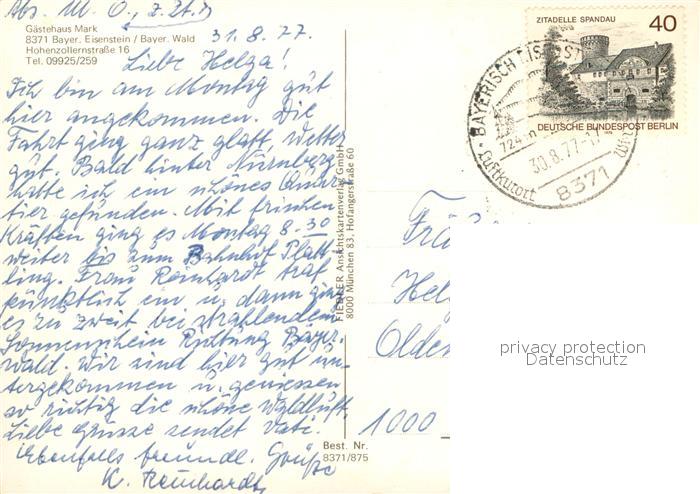 Abs. M. O., z. Zt.
Gästehaus Mark
8371 Bayer. Eisenstein / Bayer. Wald
Hohenzollernstraße 16
Tel. 09925/259
31. 8. 77.
Liebe Helga!
Ich bin am Montag gut
hier angekommen. Die
Fahrt ging ganz glatt, Wetter
gut. Bald hinter Nürnberg
hatte ich ein schönes Quar-
tier gefunden. Mit frischen
Kräften ging es Montag 8.30
weiter bis zum Bahnhof Platt-
ling. Frau Reinhardt traf
pünktlich ein u. dann ging
es zu zweit bei strahlendem
Sonnenschein Richtung Bayer.
Wald. Wir sind hier gut un-
tergekommen u. geniessen
so richtig die schöne Waldluft.
Liebe Grüsse sendet Vati.
Ebenfalls freundl. Grüße
K. Reinhardt
FIEDLER Ansichtskartenverlag GmbH
8000 München 83, Hofangerstraße 60
Best. Nr.
8371/875
ZITADELLE SPANDAU
40
DEUTSCHE BUNDESPOST BERLIN
BAYERISCH EISENST
30.8.77-17
Luftkurort
8371
Frä
Hel
Olden
1000
privacy protection
Datenschutz